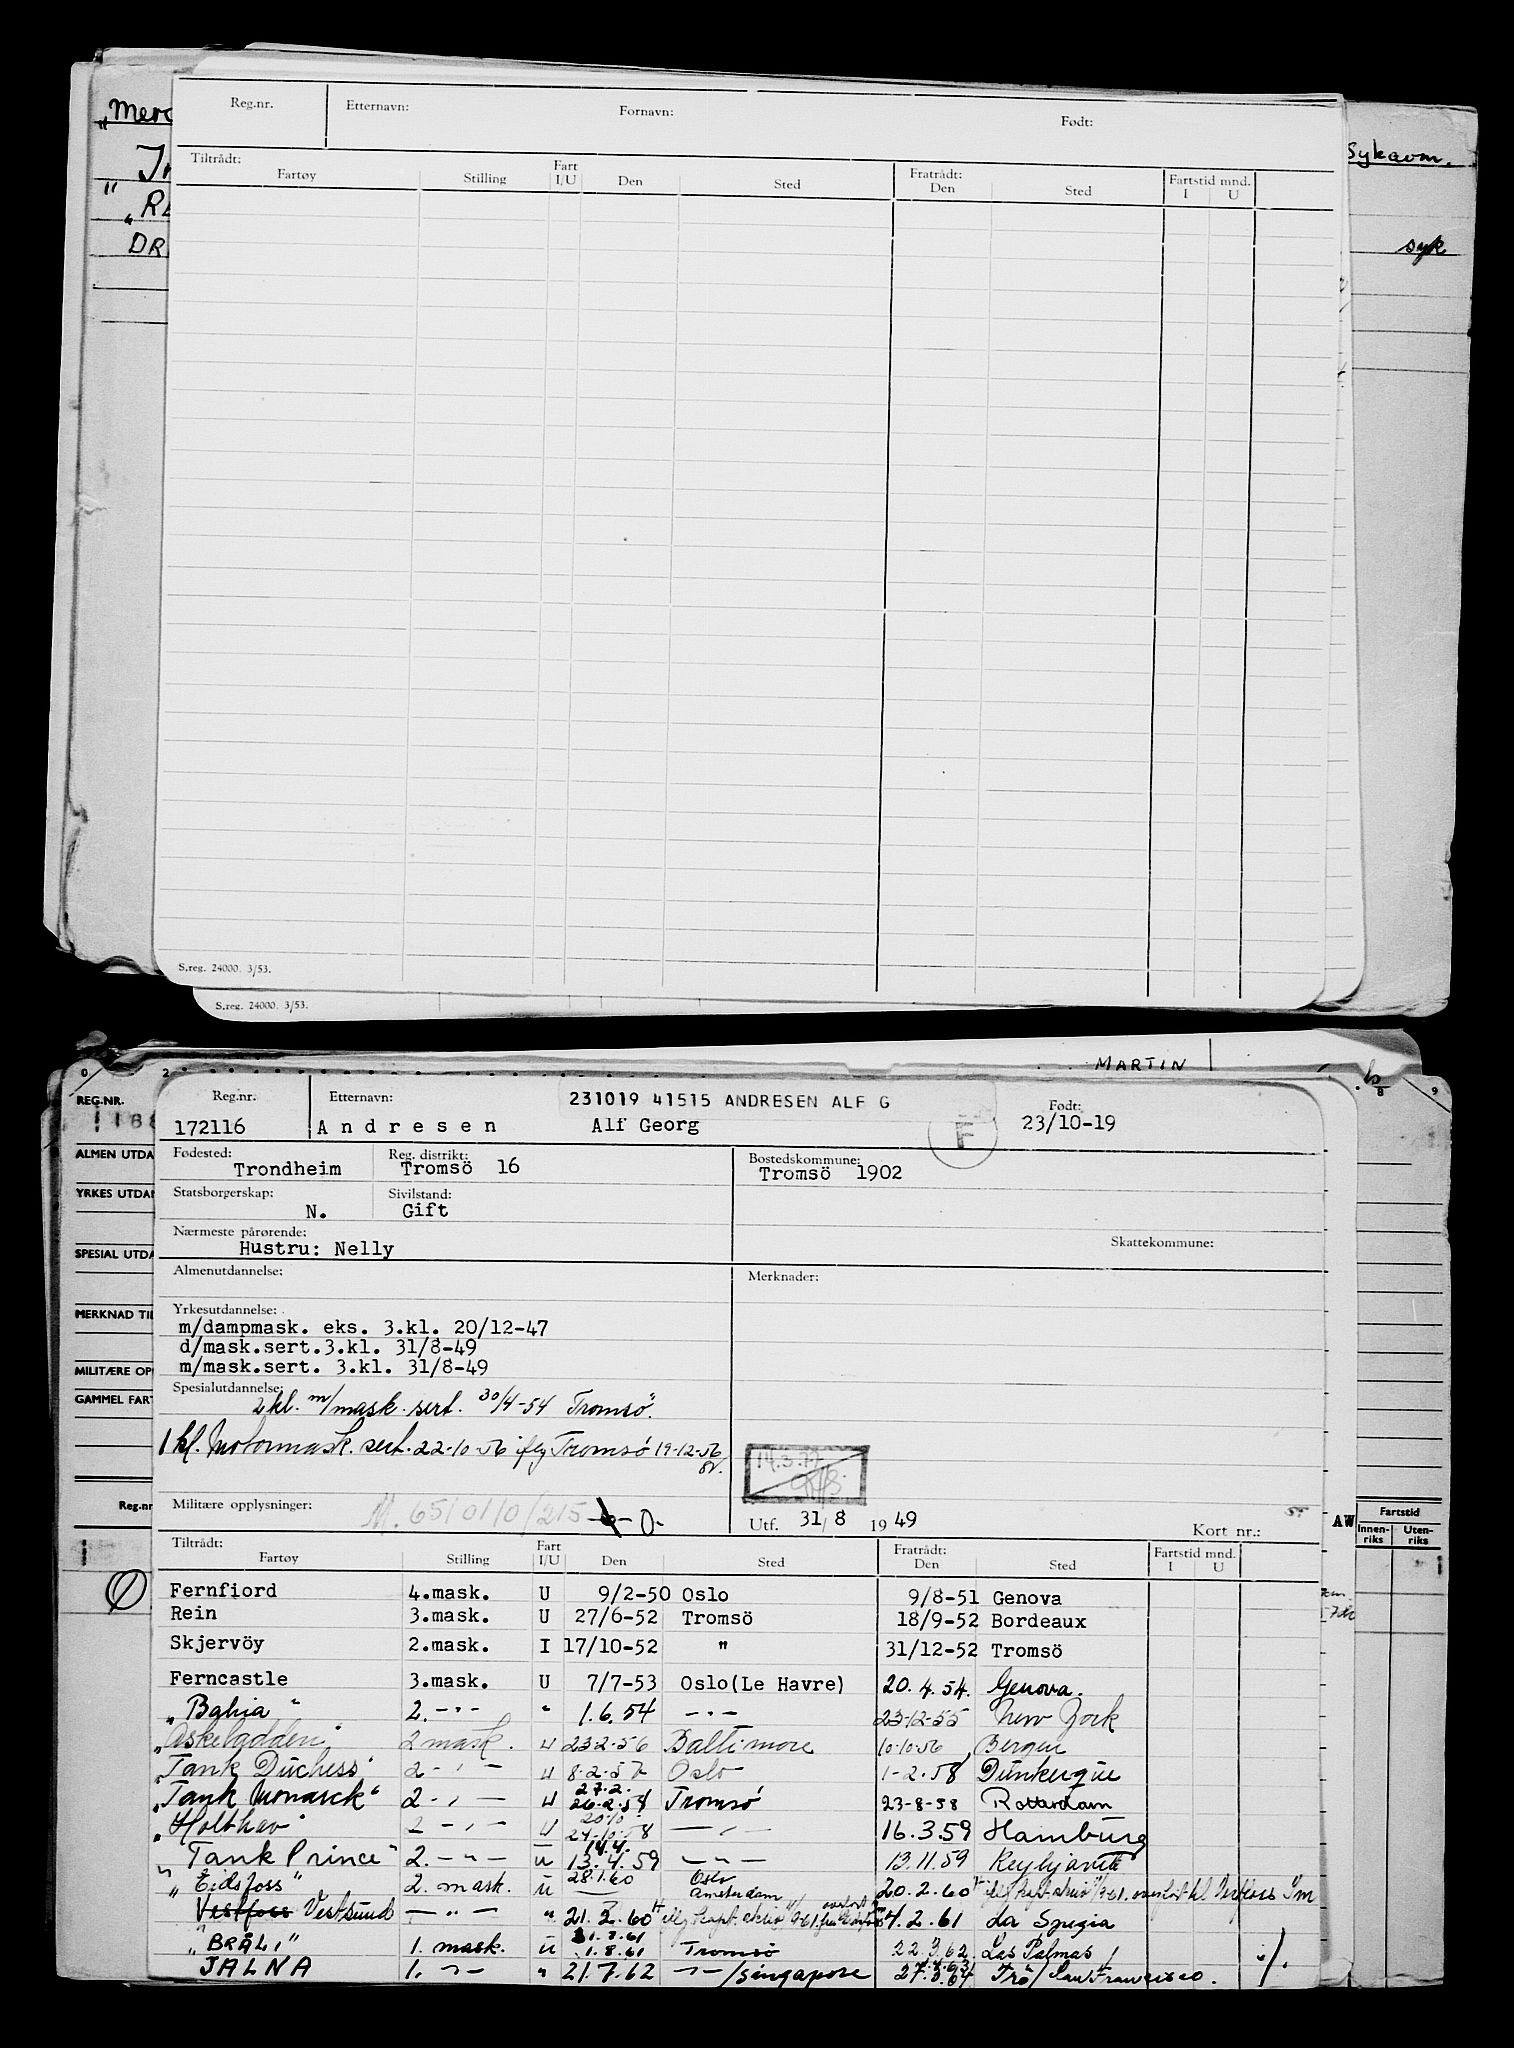 Reg.nr. Etternavn: Fornavn: Født:
Tiltrådt: Fratrådt:
Fartøy Stilling Fart I/U Den Sted Den Sted Fartstid mnd. I U
Sykavm.
DR
syk
S.reg. 24000. 3/53.
S.reg. 24000. 3/53.
MARTIN
REG.NR.
ALMEN UTDA
YRKES UTDAN
SPECIAL UTDA
MERKNAD TIL
MILITÆRE OPP
GAMMEL FART
Reg.nr
Reg.nr. Etternavn: 231019 41515 ANDRESEN ALF G Født:
172116 Andresen Alf Georg F 23/10-19
Fødested: Reg. distrikt: Bostedskommune:
Trondheim Tromsö 16 Tromsö 1902
Statsborgerskap: Sivilstand:
N. Gift
Nærmeste pårørende:
Hustru: Nelly Skattekommune:
Almenutdannelse: Merknader:
Yrkesutdannelse:
m/dampmask. eks. 3.kl. 20/12-47
d/mask.sert.3.kl. 31/8-49
m/mask.sert. 3.kl. 31/8-49
Spesialutdannelse:
2kl. m/mask. sert. 30/4-54 Tromsö.
1 kl. Motormask. sert. 22-10-56 iflg Tromsö 19-12-56
Militære opplysninger: M. 651010/215 0-
Utf. 31/8 1949 Kort nr.:
AW Fartstid
Innen-riks Uten-riks
Tiltrådt: Fratrådt:
Fartøy Stilling Fart I/U Den Sted Den Sted Fartstid mnd. I U
Fernfiord 4.mask. U 9/2-50 Oslo 9/8-51 Genova
Rein 3.mask. U 27/6-52 Tromsö 18/9-52 Bordeaux
Skjervöy 2.mask. I 17/10-52 " 31/12-52 Tromsö
Ferncastle 3.mask. U 7/7-53 Oslo(Le Havre) 20.4.54. Genova.
"Bahia" 2. -"- " 1.6.54 -"- 23-12-55 New York
"Askeladden" 2 mask. U 23-2-56 Baltimore 10-10-56 Bergen
"Tank Duchess" 2 -"- U 8-2-57 Oslo 1-2-58 Dunkerque
"Tank Monarck" 2 -"- U 27.2. 26-2-58 Tromsø 23-8-58 Rotterdam
"Holthav" 2 -"- U 20-10- 24-10-58 -"- 16.3.59 Hamburg
"Tank Prince" 2. -"- U 14.4. 13.4.59 -"- 13.11.59 Reykjavik
"Eidsfoss" 2. mask. U 28.1.60 Oslo Amsterdam 20.2.60
Vestfoss Vestsund -"- " 21.2.60 4.2.61 La Spezia
"BRÅLI" 1. mask. U 1.8.61 Tromsø 22.3.62 Las Palmas
JALNA 1. -"- " 21.7.62 -"-/Singapore 27.3.64 Trø/San Francisco.